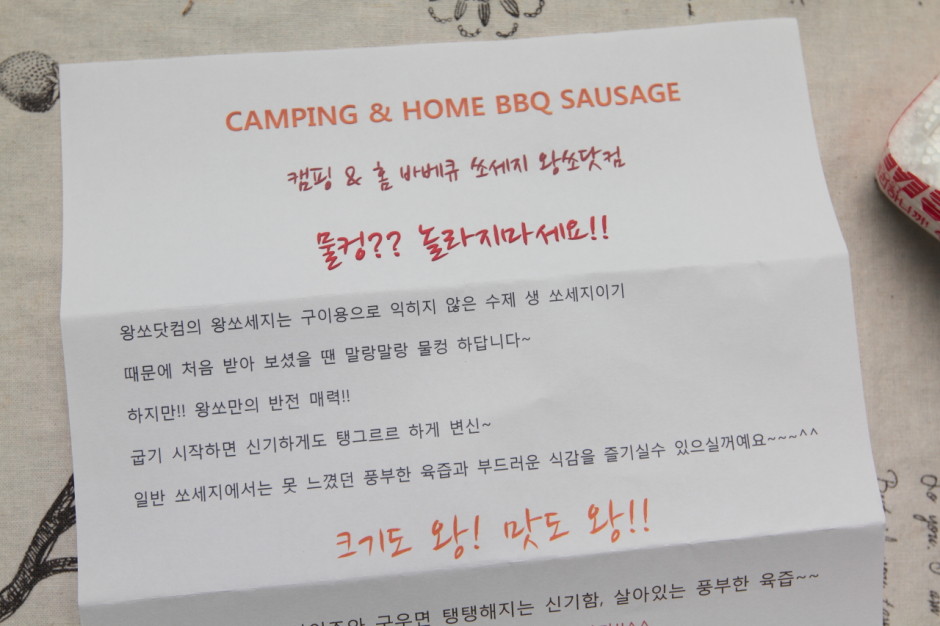 CAMPING & HOME BBQ SAUSAGE
캠핑 & 홈 바베큐 쏘세지 왕쏘닷컴
물컹?? 놀라지마세요!!
왕쏘닷컴의 왕쏘세지는 구이용으로 익히지 않은 수제 생 쏘세지이기
때문에 처음 받아 보셨을 땐 말랑말랑 물컹 하답니다~
하지만!! 왕쏘만의 반전 매력!!
굽기 시작하면 신기하게도 탱그르르 하게 변신~
일반 쏘세지에서는 못 느꼈던 풍부한 육즙과 부드러운 식감을 즐기실수 있으실꺼예요~~~^^
크기도 왕! 맛도 왕!!
구우면 탱탱해지는 신기함, 살아있는 풍부한 육즙~~